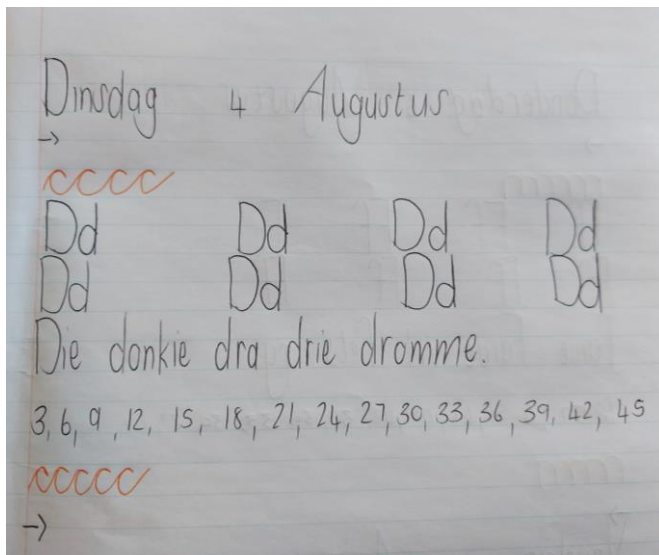 Dinsdag 4 Augustus
→
cccc
Dd Dd Dd Dd
Dd Dd Dd Dd
Die donkie dra drie dromme.
3, 6, 9, 12, 15, 18, 21, 24, 27, 30, 33, 36, 39, 42, 45
ccccc
→